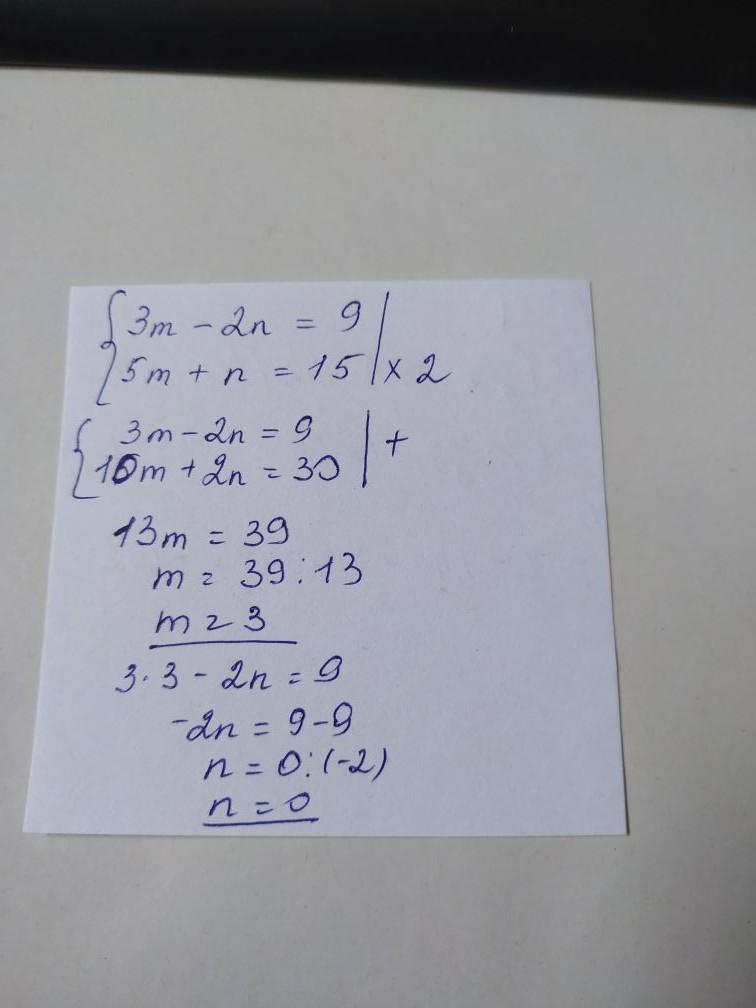 {3m - 2n = 9 |
{5m + n = 15 | x 2
{3m - 2n = 9 | +
{10m + 2n = 30 |
13m = 39
m = 39 : 13
m = 3
3 · 3 - 2n = 9
-2n = 9 - 9
n = 0 : (-2)
n = 0